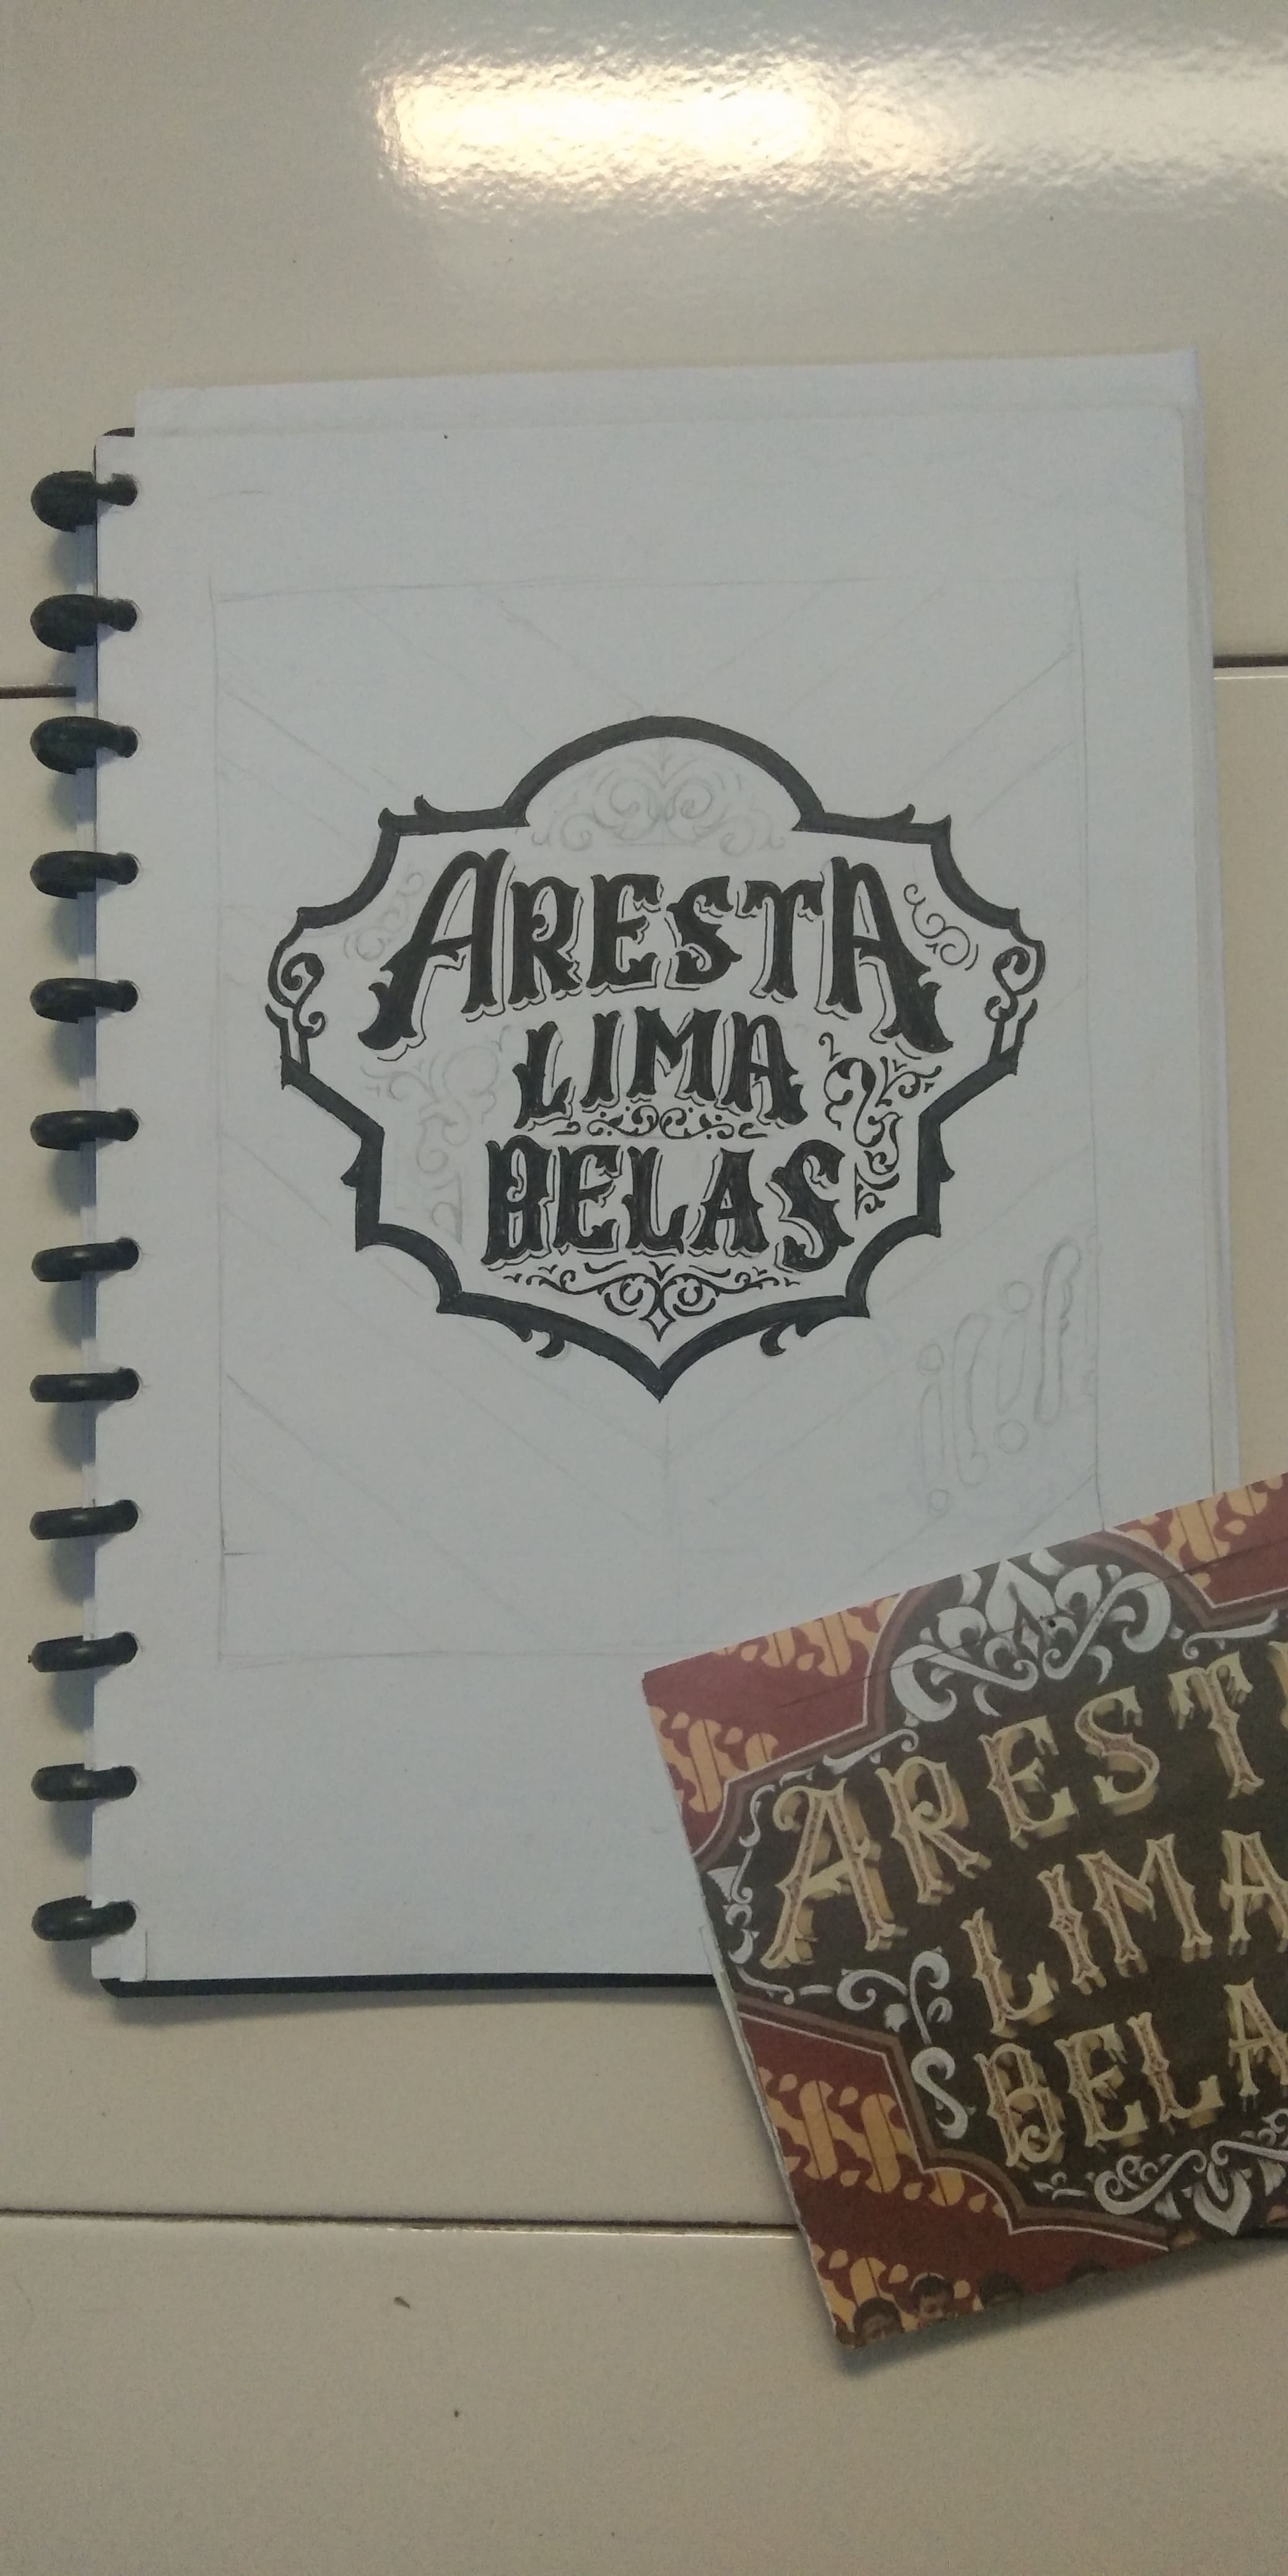 ARESTA
LIMA
BELAS
AREST
LIMA
BELA